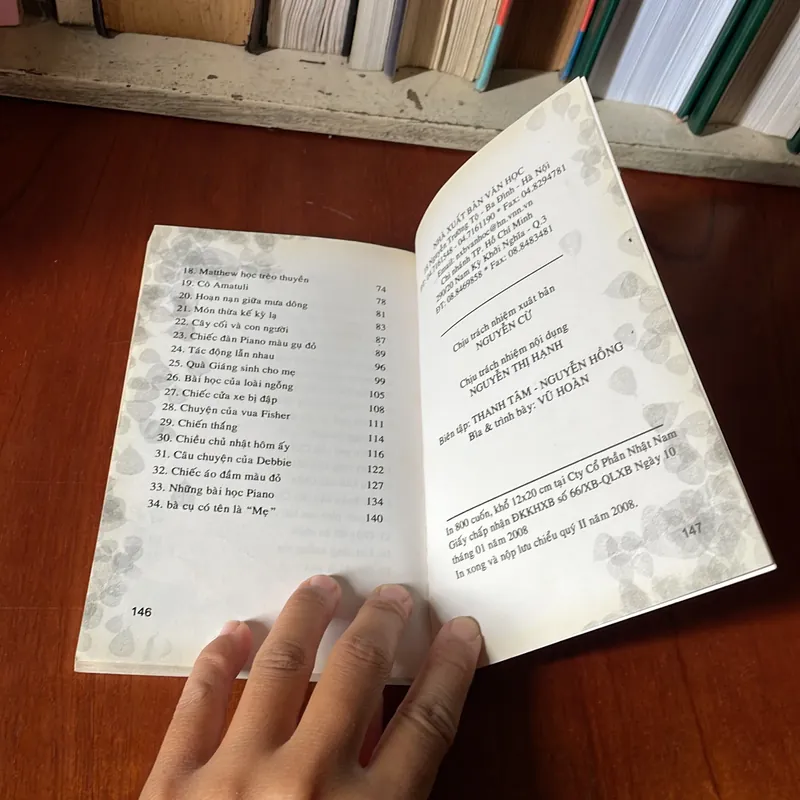 18. Matthew học trèo thuyền 74
19. Cô Amatuli 78
20. Hoạn nạn giữa mưa dông 81
21. Món thừa kế kỳ lạ 83
22. Cây cối và con người 87
23. Chiếc đàn Piano màu gụ đỏ 89
24. Tác động lẫn nhau 96
25. Quà Giáng sinh cho mẹ 99
26. Bài học của loài ngỗng 105
27. Chiếc cửa xe bị đập 108
28. Chuyện của vua Fisher 111
29. Chiến thắng 114
30. Chiều chủ nhật hôm ấy 116
31. Câu chuyện của Debbie 122
32. Chiếc áo đầm màu đỏ 127
33. Những bài học Piano 134
34. bà cụ có tên là “Mẹ” 140
146
NHÀ XUẤT BẢN VĂN HỌC
Nguyễn Trường Tộ - Ba Đình - Hà Nội
04.7161190 * Fax: 04.8294781
Email: nxbvanhoc@hn.vnn.vn
Chi nhánh TP. Hồ Chí Minh
290/20 Nam Kỳ Khởi Nghĩa - Q.3
ĐT: 08.8469858 * Fax: 08.8483481
Chịu trách nhiệm xuất bản
NGUYỄN CỪ
Chịu trách nhiệm nội dung
NGUYỄN THỊ HẠNH
Biên tập: THANH TÂM - NGUYỄN HỒNG
Bìa & trình bày: VŨ HOÀN
In 800 cuốn, khổ 12x20 cm tại Cty Cổ Phần Nhật Nam
Giấy chấp nhận ĐKKHXB số 66/XB-QLXB Ngày 10
tháng 01 năm 2008
In xong và nộp lưu chiểu quý II năm 2008.
147